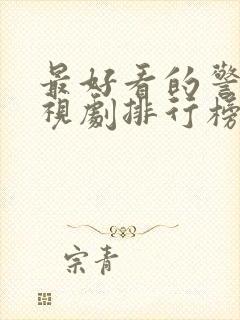 最好看的警
視劇排行榜
宗青